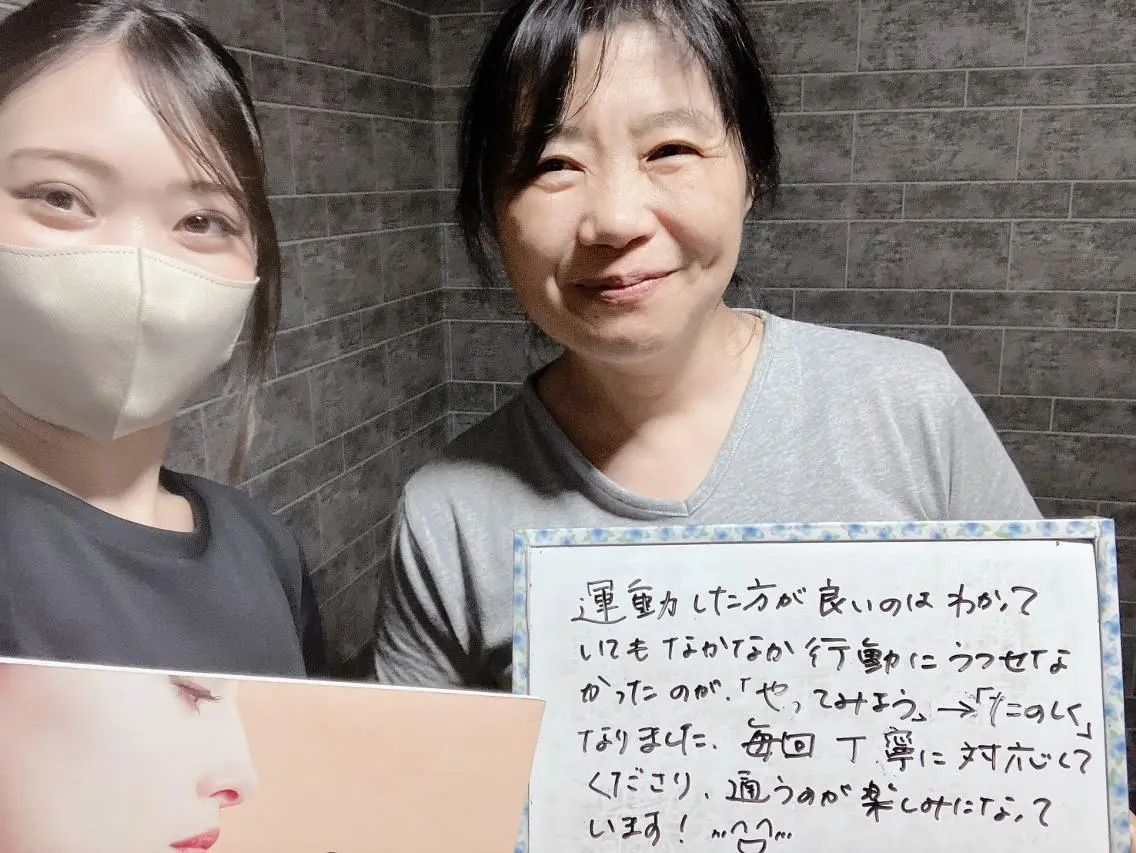 運動した方が良いのはわかって
いてもなかなか行動にうつせな
かったのが、「やってみよう」→「たのしく」
なりました、毎回丁寧に対応して
くださり、通うのが楽しみになって
います!